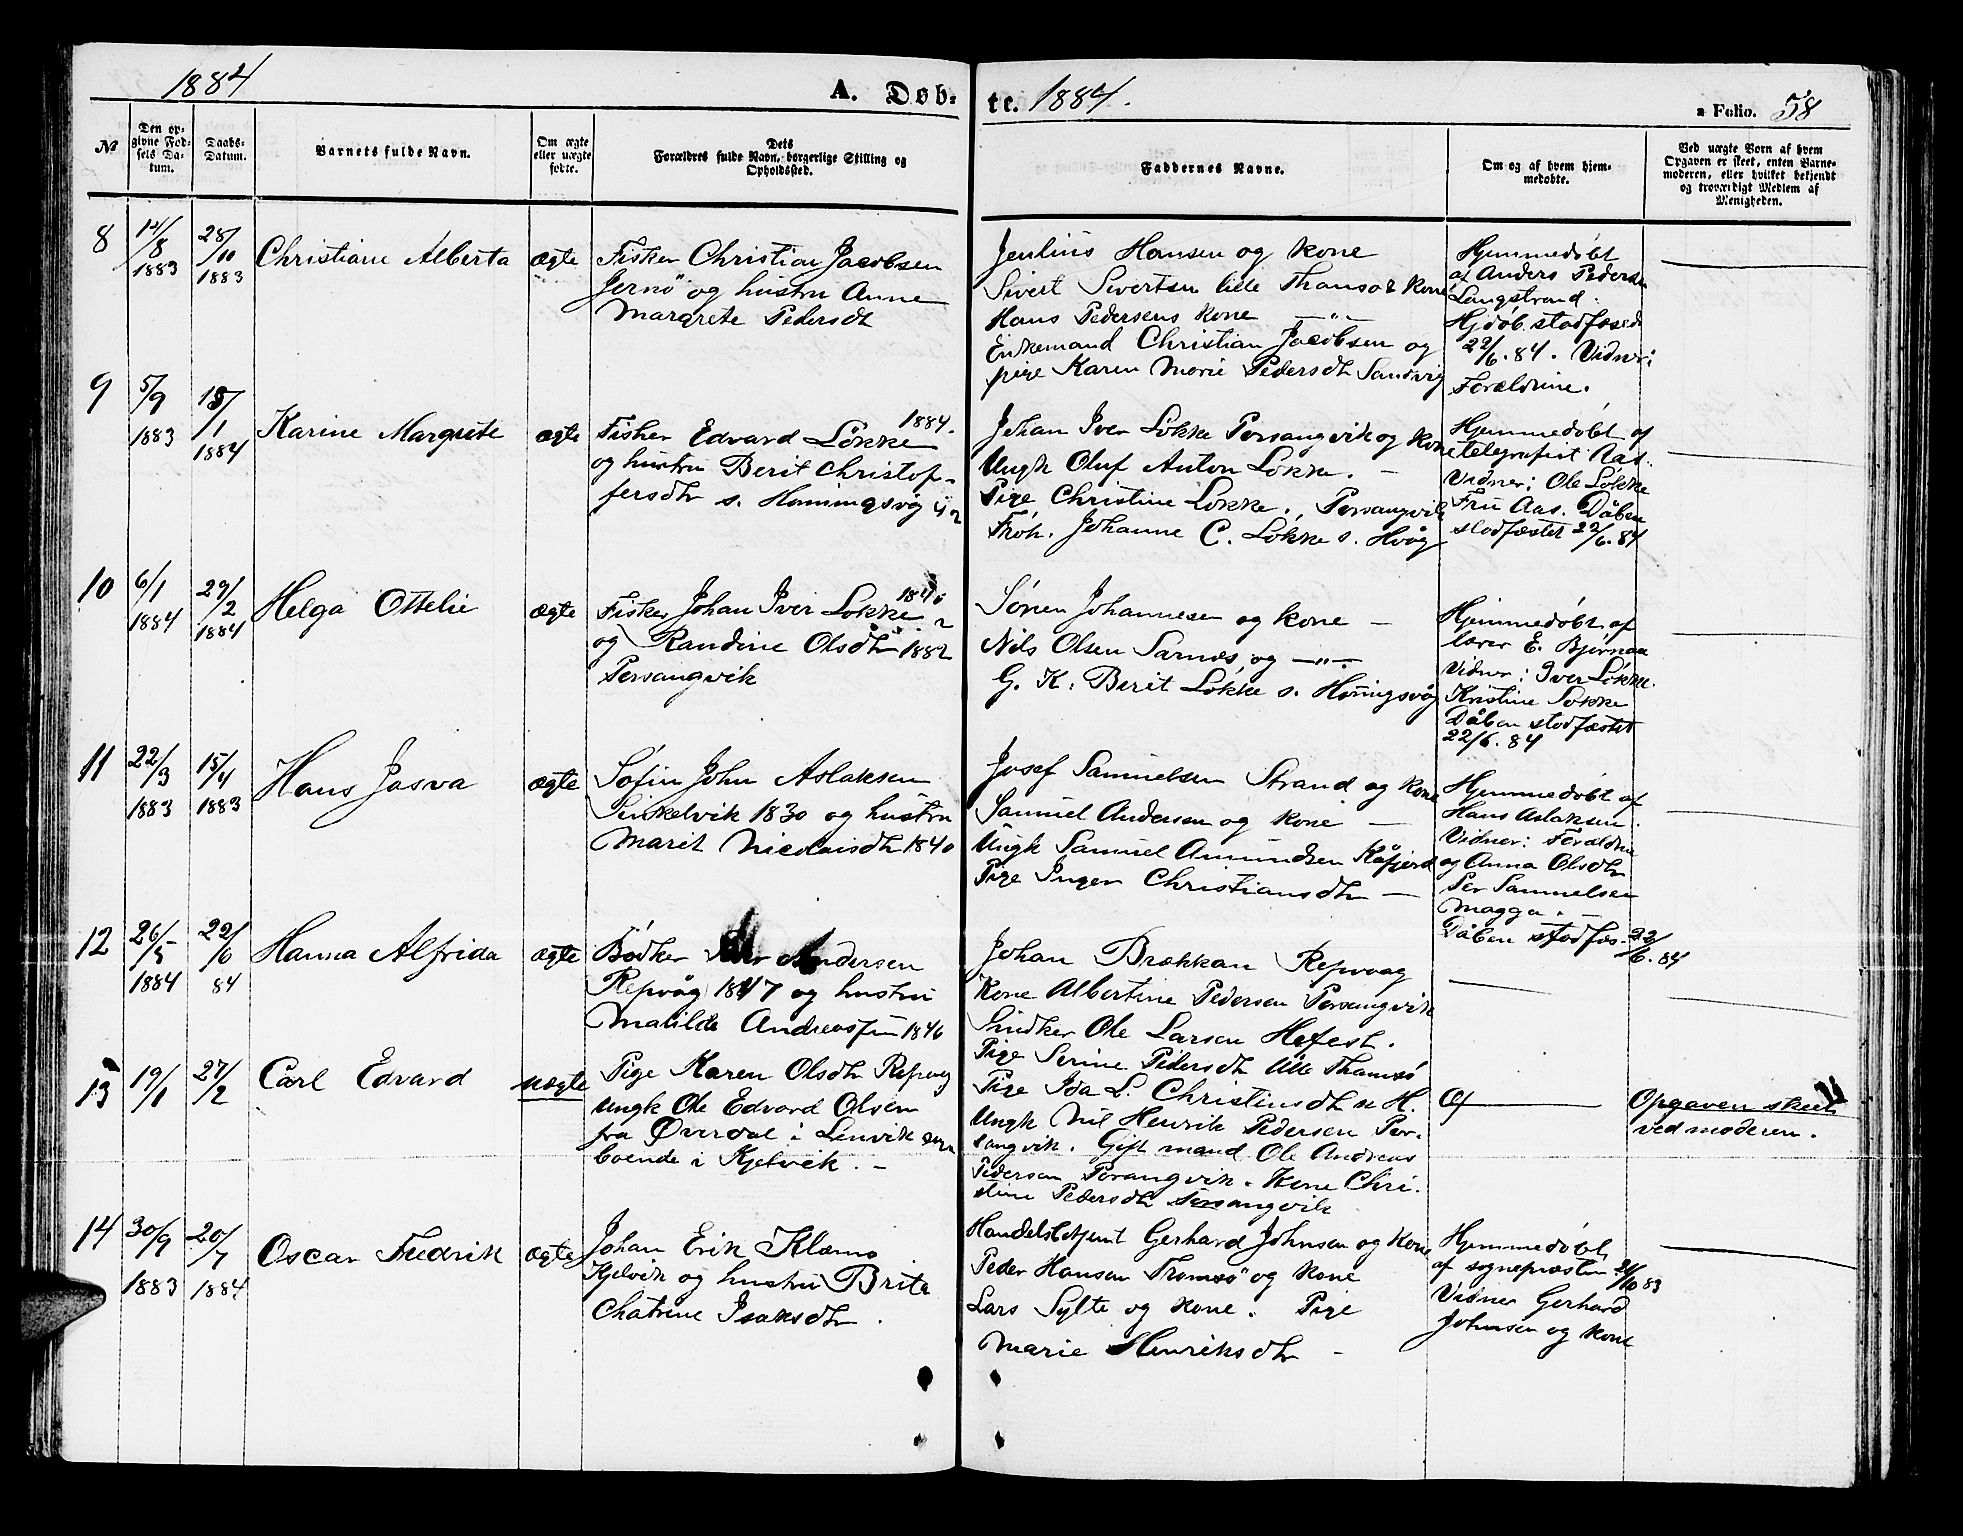 1884
A. Døb-
te. 1884.
a Folio. 58
№
Den op-
givne Fød-
sels Da-
tum.
Daabs-
Datum.
Barnets fulde Navn.
Om ægte
eller uægte
fødte.
Dets
Forældres fulde Navn, borgerlige Stilling og
Opholdssted.
Faddernes Navne.
Om og af hvem hjem-
medøbte.
Ved uægte Børn af hvem
Opgaven er skeet, enten Barne-
moderen, eller hvilket bekjendt
og troværdigt Medlem af
Menigheden.
8
12/8
1883
28/10
1883
Christiane Alberta
ægte
Fisker Christian Jacobsen
Jernø og hustru Anne
Margrete Pedersdtr
Jenlius Hansen og kone
Sivert Sivertsen lille Thamsø & kone
Hans Pedersens kone —"—
Enkemand Christian Jacobsen og
pige Karen Marie Pedersdtr Sandvig
Hjemmedøbt
af Anders Pedersen
Langstrand.
Hjdøb. stadfæsted
22/6. 84. Vidner:
Forældrene.
9
5/9
1883
18/1
1884
Karine Margrete
ægte
1884.
Fisker Edvard Løkke
og hustru Berit Christof-
fersdtr s. Honningsvåg
Johan Iver Løkke Porsangvik og kone
Ungk Oluf Anton Løkke. —
Pige Christine Løkke., Porsangvik
Frøk. Johanne C. Løkke s. Hvåg
Hjemmedøbt af
telegrafist Aas.
Vidner: Ole Løkke
Fru Aas. Dåben
stadfæstet 22/6. 84
10
6/1
1884
29/2
1884
Helga Ottelie
ægte
Fisker Johan Iver Løkke
og Randine Olsdtr 1882
Porsangvik
Søren Johannesen og kone —
Nils Olsen Sarnes, og —"—
G. K. Berit Løkke s. Honingsvåg
Hjemmedøbt af
lærer E. Bjørnaa
Vidner: Iver Løkke.
Kristine Løkke
Dåben stadfæstet
22/6. 84
11
22/3
1883
15/4
1883
Hans Josva
ægte
Søfin John Aslaksen
Sinkelvik 1830 og hustru
Marit Nicolaisdtr 1840
Josef Samuelsen Strand og kone
Samuel Andersen og kone —
Ungk Samuel Amundsen Kåfjord
Pige Inger Christiansdtr —
Hjemmedøbt af
Hans Aslaksen.
Vidner: Forældrene
og Anna Olsdtr
Per Samuelsen
Magga. —
Dåben stadfæs. 22/6. 84
12
26/5
1884
22/6
84
Hanna Alfrida
ægte
Bødker Andersen
Repvåg 1847 og hustru
Matilde Andreasdtr 1846
Johan Brækkan Repvaag
Kone Albertine Pedersen Porsangvik
Snidker Ole Larsen Høfest.
Pige Serine Pedersdtr lille Thamsø
13
19/1
27/2
Carl Edvard
uægte
Pige Karen Olsdtr Repvåg
Ungk Ole Edvard Olsen
fra Øverdal i Lenvik
boende i Kjelvik. —
Pige Ida L. Christinsdtr
Ungk Nil Henrik Pedersen Por-
sangvik. Gift mand Ole Andreas
Pedersen Porsangvik. Kone Chri-
stine Pedersdtr Porsangvik
Opgaven skeet
ved moderen.
14
30/9
1883
20/7
1884
Oscar Fredrik
ægte
Johan Erik Klæmo
Kjelvik og hustru Brita
Chatrine Isaksdtr.
Handelsbetjent Gerhard Johnsen og kone
Peder Hansen Tromsø og kone
Lars Sylte og kone. Pige
Marie Henriksdtr —
Hjemmedøbt
af sognepræsten 21/10 83
Vidner Gerhard
Johnsen og kone